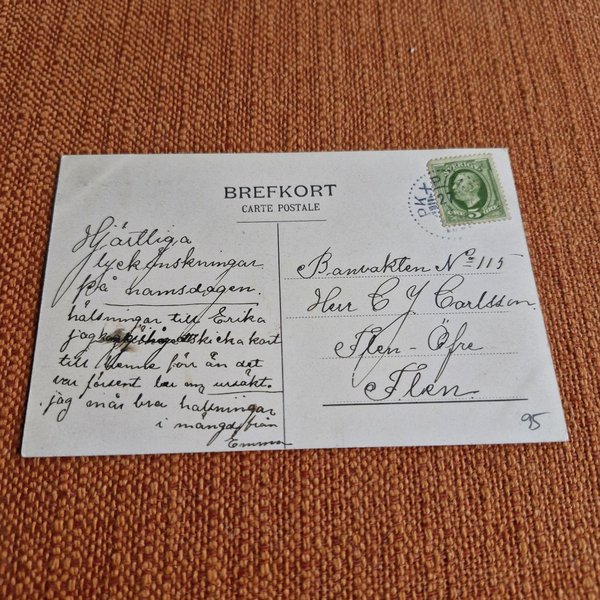 BREFKORT
CARTE POSTALE
SVERIGE
5
PKXP
Hjärtliga
lyckönskningar
på namsdagen.
hälsningar till Erika
jag skicka kort
till henne för än det
var försent ber om ursäkt.
jag mår bra halsningar
i mängd från
Emma
Banvakten No 115
Herr C J Carlsson
Flen-Öfre
Flen.
95